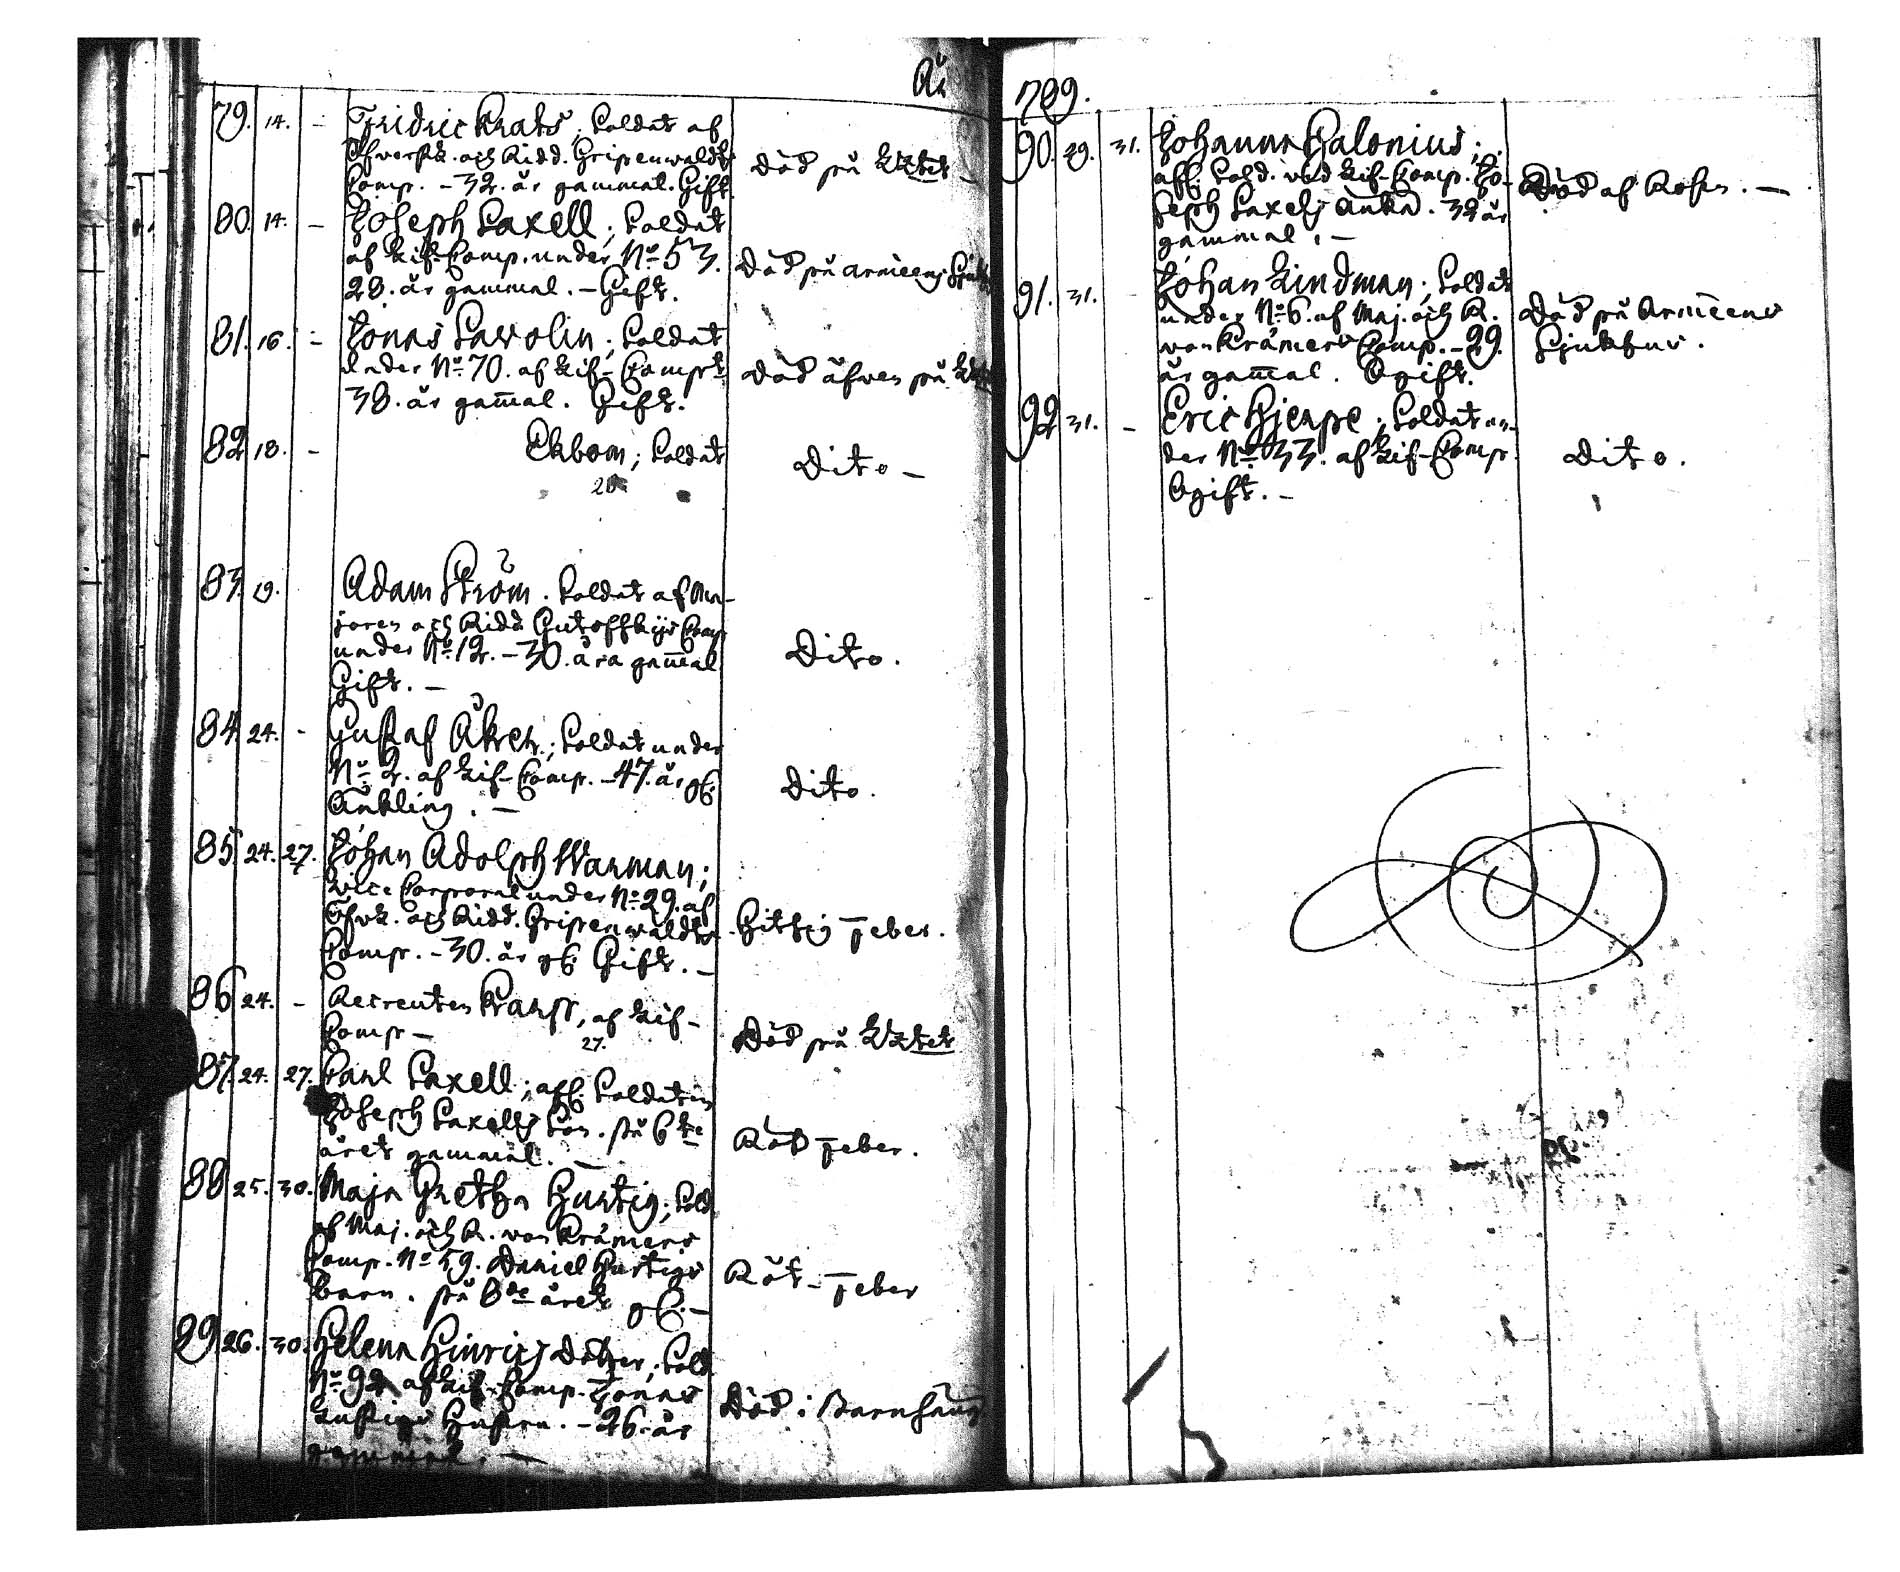 År
79. 14. - Fridric Krats; Soldat af
Öfverstl. och Ridd. Gripenwaldts
Comp. - 32. år gammal. Gift.
Död på
80. 14. - Joseph Saxell; Soldat
af Lif-Comp. under No 53.
28. år gammal. - Gift.
Död på Armeens Sjukh
81. 16. - Jonas Savolin; Soldat
under No 70. af Lif-Comp
38. år gamal. Gift.
Död äfven på
82 18. - Ekbom; Soldat
Dito -
83. 19. Adam Ström. Soldat af Ma-
joren och Ridd Gutoffskijs Comp
under No 12. - 30. åra gamal
Gift. -
Dito.
84. 24. - Gustaf Åkren; Soldat under
No 2. af Lif-Comp. - 47. år gl.
Änkling. -
Dito.
85 24. 27. Johan Adolph Warman;
Vice Corporal under No 29. af
Öfvl. och Ridd. Gripenwaldts
Comp. - 30. år gl. Gift. -
Hitsig feber.
86 24. - Recreuten Kramp, af Lif-
Comp -
27.
Död på
87. 24. 27. Paul Saxell; afl. Soldaten
Joseph Saxells Son. på 6te
året gammal. -
Röt feber.
88 25. 30. Maja Gretha Hurtig; Sold
af Maj. och R. von Kræmers
Comp. No 59. Daniel Hurtigs
Barn. på 8de året gl. -
Röt-feber
89. 26. 30. Helena Hinricsdotter; Sold
No 92 af Lif-Comp. Jonas
Lustigs Hustru. - 26. år
gammal. -
Död i Barnsäng
789.
90. 29. 31. Johanna Palonius;
afl. Sold. vid Lif-Comp. Jo-
seph Saxells Änka. 32 år
gammal. -
Död af Rosen. -
91. 31. - Johan Lindman; Soldat
under No 6. af Maj. och R.
von Kræmers Comp. - 29.
år gamal. Ogift.
Död på Armeens
Sjukhus.
92 31. - Eric Hjerpe; Soldat un-
der No 33. af Lif-Comp
Ogift. -
Dito.